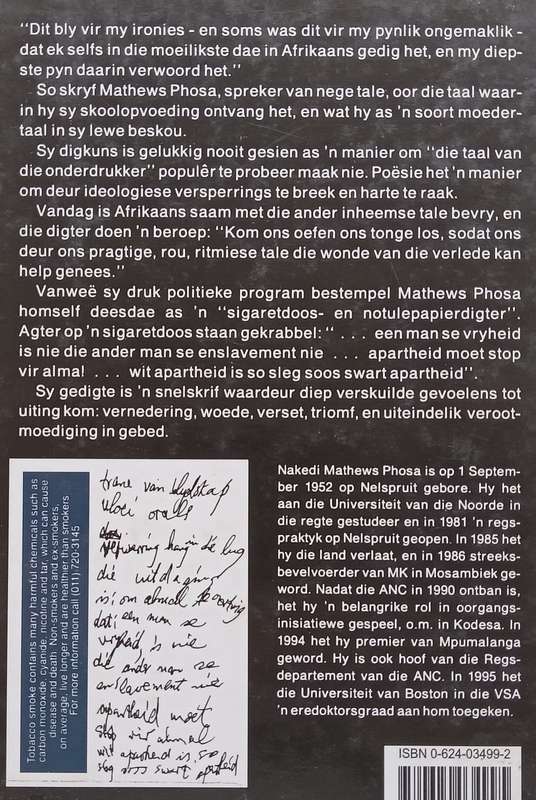 “Dit bly vir my ironies - en soms was dit vir my pynlik ongemaklik -
dat ek selfs in die moeilikste dae in Afrikaans gedig het, en my diep-
ste pyn daarin verwoord het.”
So skryf Mathews Phosa, spreker van nege tale, oor die taal waar-
in hy sy skoolopvoeding ontvang het, en wat hy as 'n soort moeder-
taal in sy lewe beskou.
Sy digkuns is gelukkig nooit gesien as 'n manier om “die taal van
die onderdrukker” populêr te probeer maak nie. Poësie het 'n manier
om deur ideologiese versperrings te breek en harte te raak.
Vandag is Afrikaans saam met die ander inheemse tale bevry, en
die digter doen 'n beroep: “Kom ons oefen ons tonge los, sodat ons
deur ons pragtige, rou, ritmiese tale die wonde van die verlede kan
help genees.”
Vanweë sy druk politieke program bestempel Mathews Phosa
homself deesdae as 'n “sigaretdoos- en notulepapierdigter”.
Agter op 'n sigaretdoos staan gekrabbel: “ . . . een man se vryheid
is nie die ander man se enslavement nie . . . apartheid moet stop
vir almal . . . wit apartheid is so sleg soos swart apartheid”.
Sy gedigte is 'n snelskrif waardeur diep verskuilde gevoelens tot
uiting kom: vernedering, woede, verset, triomf, en uiteindelik veroot-
moediging in gebed.
Tobacco smoke contains many harmful chemicals such as
carbon monoxide, cyanide, nicotine and tar, which can cause
disease and death. Non-smokers and ex-smokers,
on average, live longer and are healthier than smokers
For more information call (011) 720 3145
trane van blydskap
vloei oralls
verwarring hang in die lug
die uitdaging
is om almal te oortuig
dat: een man se
vryheid is nie
die ander man se
enslavement nie
apartheid moet
stop vir almal
wit apartheid is so
sleg soos swart apartheid
Nakedi Mathews Phosa is op 1 Septem-
ber 1952 op Nelspruit gebore. Hy het
aan die Universiteit van die Noorde in
die regte gestudeer en in 1981 'n regs-
praktyk op Nelspruit geopen. In 1985 het
hy die land verlaat, en in 1986 streeks-
bevelvoerder van MK in Mosambiek ge-
word. Nadat die ANC in 1990 ontban is,
het hy 'n belangrike rol in oorgangs-
inisiatiewe gespeel, o.m. in Kodesa. In
1994 het hy premier van Mpumalanga
geword. Hy is ook hoof van die Regs-
departement van die ANC. In 1995 het
die Universiteit van Boston in die VSA
'n eredoktorsgraad aan hom toegeken.
ISBN 0-624-03499-2